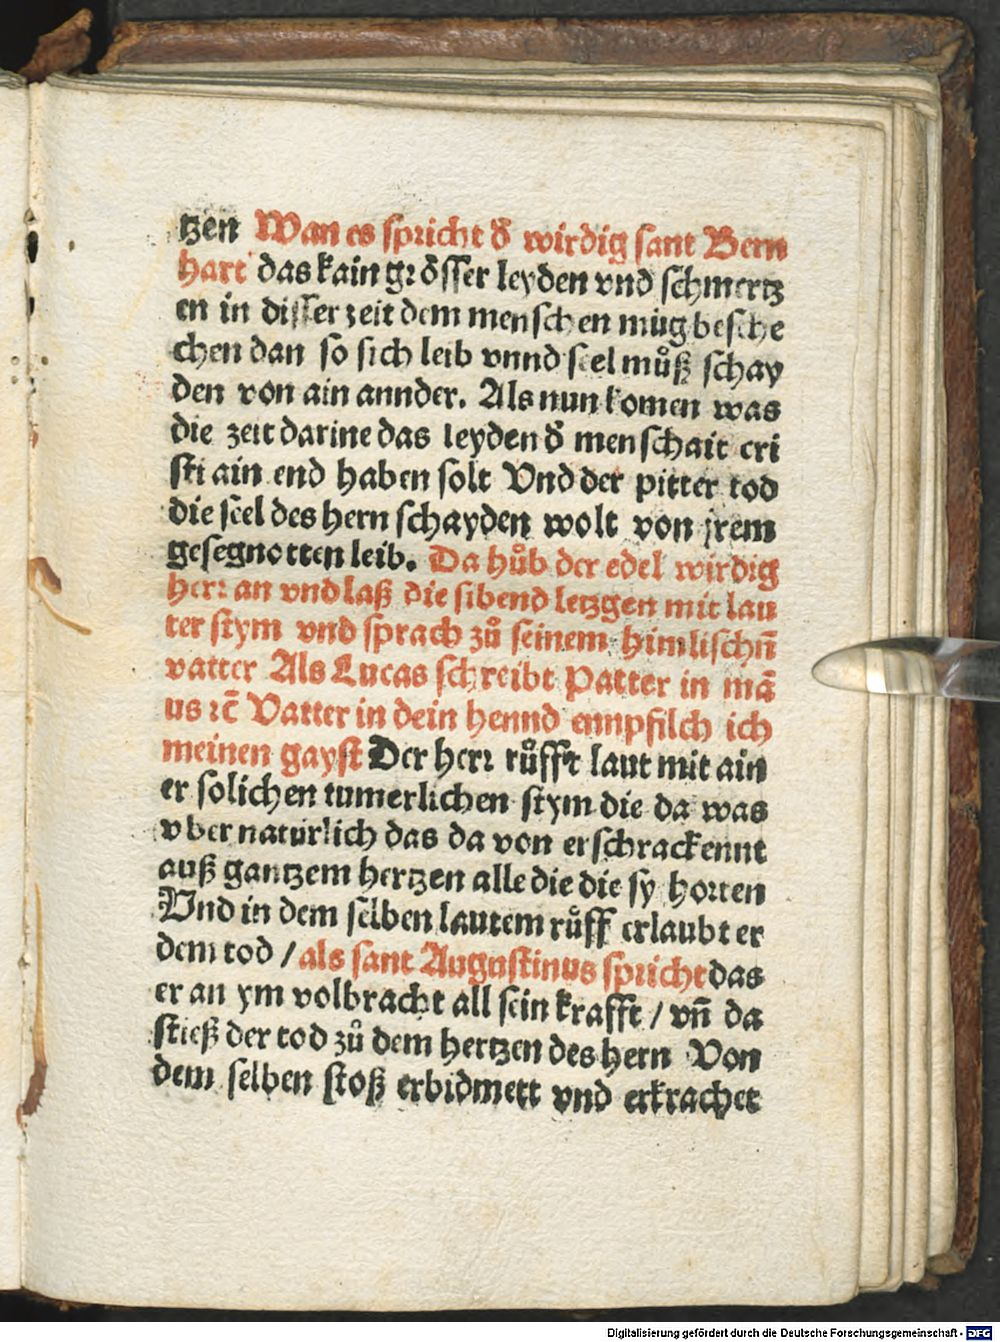 tzen Wan es spricht d̾ wirdig sant Bern
hart das kain grösser leyden vnd schmertz
en in disser zeit dem menschen müg besche
chen dan so sich leib vnnd seel můß schay
den von ain annder. Als nun komen was
die zeit darine das leyden d̾ menschait cri
sti ain end haben solt Vnd der pitter tod
die seel des hern schayden wolt von jrem
gesegnotten leib. Da hůb der edel wirdig
herr an vnd laß die sibend letzgen mit lau
ter stym vnd sprach zů seinem himlischn̄
vatter Als Lucas schreibt Patter in mā
us rc̄ Vatter in dein hennd enmpfilch ich
meinen gayst Der herr růfft laut mit ain
er solichen tumerlichen stym die da was
vber naturlich das da von erschrackennt
auß gantzem hertzen alle die die sy horten
Vnd in dem selben lautem růff erlaubt er
dem tod / als sant Augustinus spricht das
er an ym volbracht all sein krafft / vn̄ da
stieß der tod zů dem hertzen des hern Von
dem selben stoß erbidmett vnd erkrachet
Digitalisierung gefördert durch die Deutsche Forschungsgemeinschaft - DFG